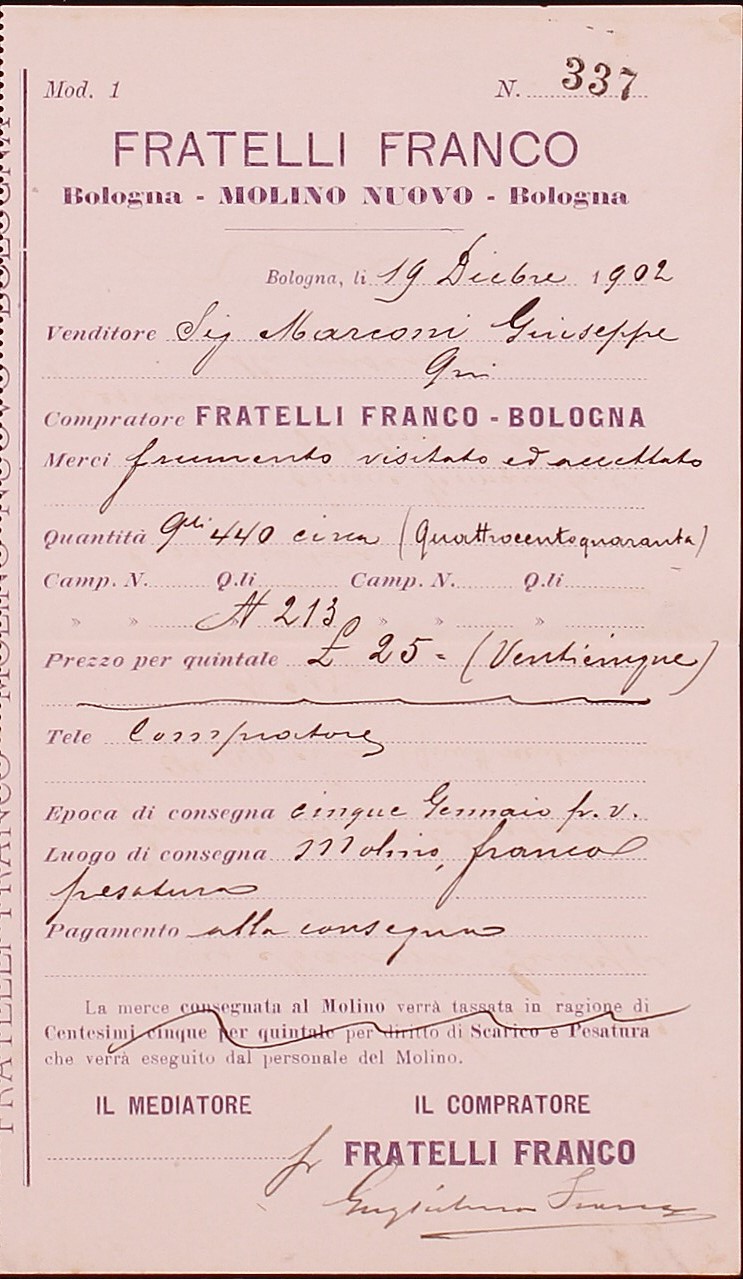 Mod. 1 N. 337
FRATELLI FRANCO
Bologna - MOLINO NUOVO - Bologna
Bologna, li 19 Dicbre 1902
Venditore Sig Marconi Giuseppe
Qui
Compratore FRATELLI FRANCO - BOLOGNA
Merci frumento visitato ed accettato
Quantità Qli 440 circa (Quattrocentoquaranta)
Camp. N. Q.li Camp. N. Q.li
» » N 213 » » »
Prezzo per quintale £ 25 = (Venticinque)
Tele Compratore
Epoca di consegna cinque Gennaio p. v.
Luogo di consegna Molino, franco
pesatura
Pagamento alla consegna
La merce consegnata al Molino verrà tassata in ragione di
Centesimi cinque per quintale per diritto di Scarico e Pesatura
che verrà eseguito dal personale del Molino.
IL MEDIATORE IL COMPRATORE
FRATELLI FRANCO
Guglielmo Franco